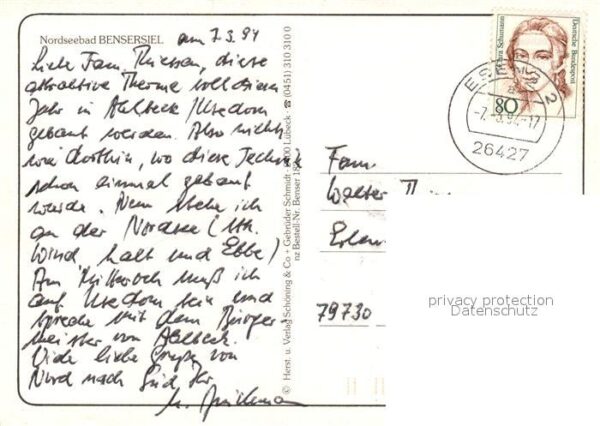 Nordseebad BENSERSIEL
am 7.3.94
Liebe Fam. Thiessen, diese
attraktive Therme soll dieses
Jahr in Ahlbeck / Usedom
gebaut werden. Also nichts
wie dorthin, wo diese Technik
schon einmal gebaut
wurde. Nun stehe ich
an der Nordsee (
Wind, kalt und Ebbe)
Am Mittwoch muß ich
auf Usedom sein und
spreche mit dem Bürger-
meister von Ahlbeck.
Viele liebe Grüße von
Nord nach Süd Ihr
© Herst. u. Verlag Schöning & Co + Gebrüder Schmidt · Lübeck · ☎ (0451) 310 310 0
nz Bestell-Nr. Benser
Clara Schumann
Deutsche Bundespost
80
-7.-3.94-17
26427
Fam
Walter
79730
privacy protection
Datenschutz